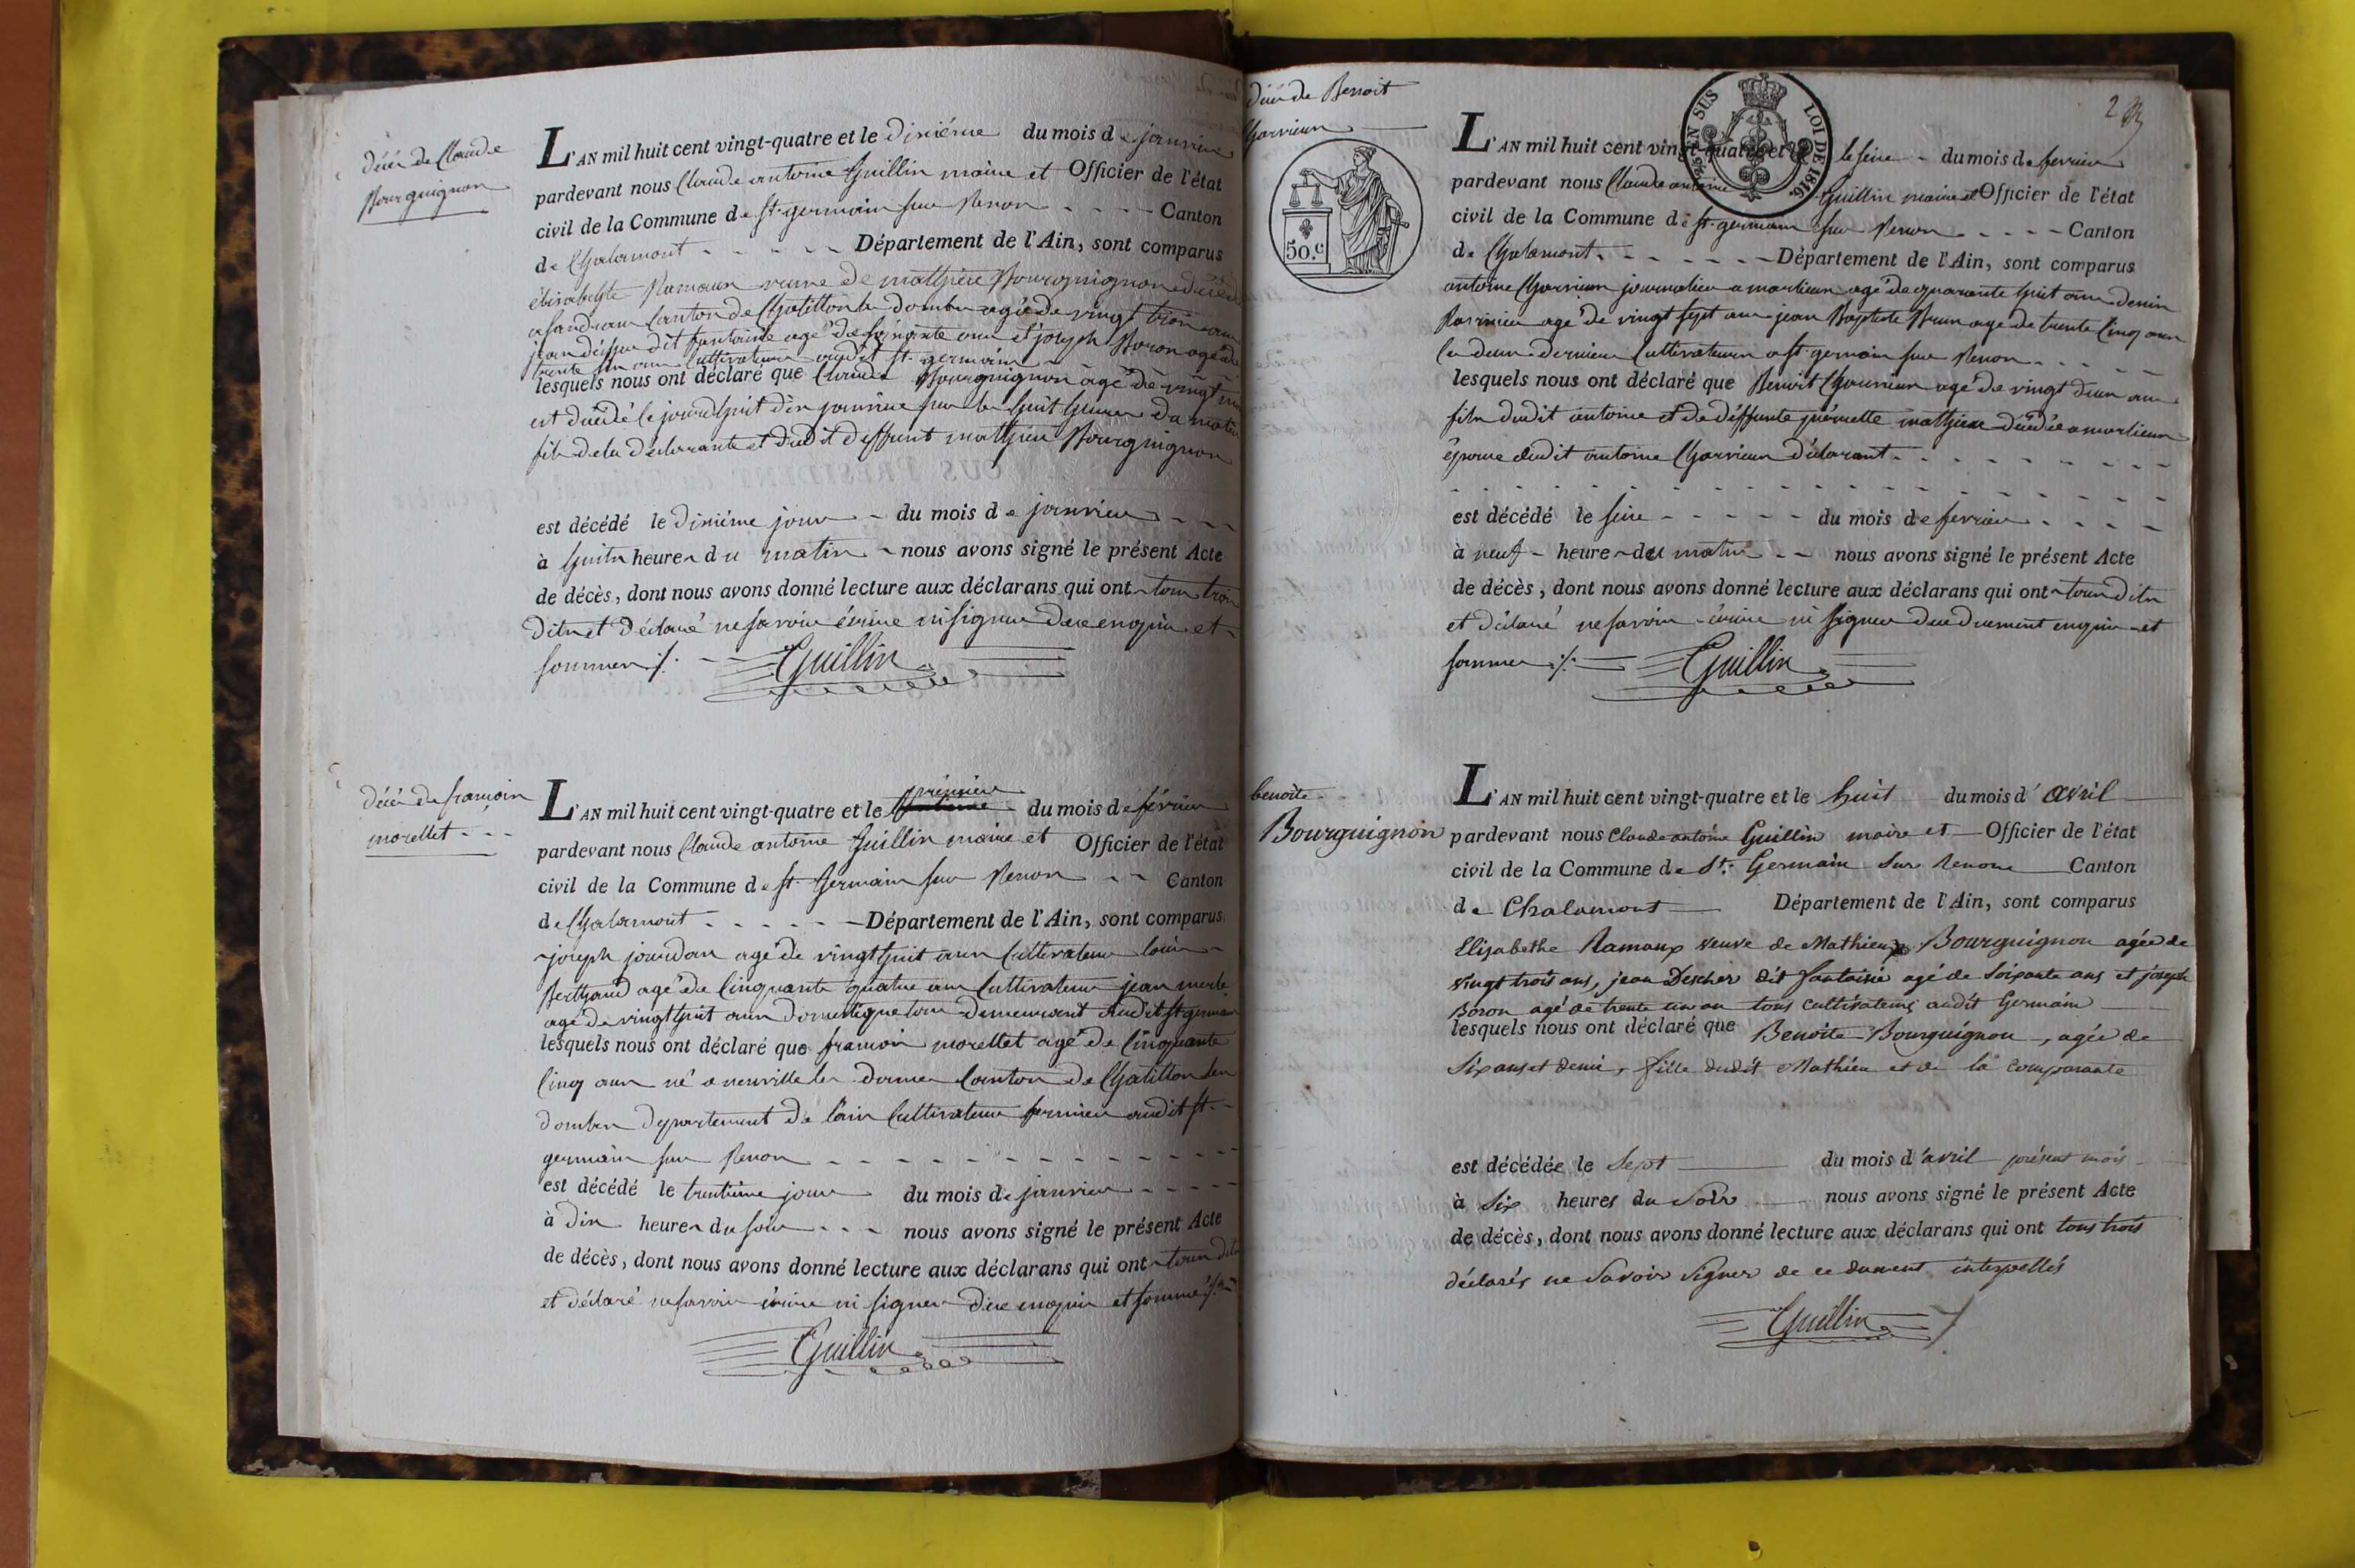 décés de Claude
Bourguignon
L'AN mil huit cent vingt-quatre et le dixiéme du mois de janvier
pardevant nous Claude antoine Guillin maire et Officier de l'état
civil de la Commune de st. germain sur Renon - - - - Canton
de Chalamont - - - - - Département de l'Ain, sont comparus
élisabethe Ramaux veuve de mathieu Bourguignon décédé
a sandrans Canton de Chatillon les dombes agée de vingt trois ans
jean descher dit fantaisie agé de soixante ans et joseph Boron agé de
trente un ans Cultivateurs audit st. germain
lesquels nous ont déclaré que Claude Bourguignon agé de vingt
est décédé le jourdhuit dix janvier sur les huit heures du matin
fils de la déclarante et dudit deffunt mathieu Bourguignon
est décédé le dixiéme jour - du mois de janvier - - -
à huits heures du matin - nous avons signé le présent Acte
de décès, dont nous avons donné lecture aux déclarans qui ont tous trois
dits et déclaré ne savoir écrire ni signer de ce enquis et
sommes ./. Guillin
décés de françois
morellet - - -
L'AN mil huit cent vingt-quatre et le prémier du mois de février
pardevant nous Claude antoine Guillin maire et Officier de l'état
civil de la Commune de st. Germain sur Renon - - Canton
de Chalamont - - - - - Département de l'Ain, sont comparus
joseph jourdan agé de vingt huit ans Cultivateur louis
Berthaud agé de Cinquante quatre ans Cultivateur jean merle
agé de vingt huit ans domestique tous demeurant audit st germain
lesquels nous ont déclaré que francois morellet agé de Cinquante
Cinq ans né a neuville les dames Canton de Chatillon les
dombes département de l'ain Cultivateur fermier audit st.
germain sur Renon - - - - - - - - - -
est décédé le trentiéme jour du mois de janvier - - - -
à dix heures du soir - - - nous avons signé le présent Acte
de décès, dont nous avons donné lecture aux déclarans qui ont tous dits
et déclaré ne savoir écrire ni signer de ce enquis et sommé ./.
Guillin
décés de Benoit
Charvieux
50.c
EN SUS
LOI DE 1816
L'AN mil huit cent vingt-quatre et le le seize - du mois de fevrier
pardevant nous Claude antoine Guillin maire et Officier de l'état
civil de la Commune de st. germain sur Renon - - - - Canton
de Chalamont - - - - - - Département de l'Ain, sont comparus
antoine Charvieux journalier a marlieux agé de quarante huit ans denis
agé de vingt sept ans jean Baptiste Brun agé de trente Cinq ans
les deux derniers Cultivateurs a st. germain sur Renon - - - -
lesquels nous ont déclaré que Benoit Charvieux agé de vingt deux ans
fils dudit antoine et de deffunte mathieux décédée a marlieux
épouse dudit antoine Charvieux déclarant - - - - - - - -
est décédé le seize - - - - - du mois de fevrier - - - -
à neuf - heures du matin - - nous avons signé le présent Acte
de décès, dont nous avons donné lecture aux déclarans qui ont tous dits
et déclaré ne savoir écrire ni signer de ce duement enquis et
sommes ./. Guillin
benoite
Bourguignon
L'AN mil huit cent vingt-quatre et le huit du mois d'avril
pardevant nous Claude antoine Guillin maire et Officier de l'état
civil de la Commune de St. Germain sur Renone Canton
de Chalamont Département de l'Ain, sont comparus
Elisabethe Ramaux veuve de Mathieu Bourguignon agée de
vingt trois ans, jean Descher dit fantaisie agé de soixante ans et joseph
Boron agé de trente un an tous cultivateurs audit Germain
lesquels nous ont déclaré que Benoite Bourguignon, agée de
six ans et demi, fille dudit Mathieu et de la comparante
est décédée le Sept du mois d'avril présent mois
à Six heures du Soir nous avons signé le présent Acte
de décès, dont nous avons donné lecture aux déclarans qui ont tous trois
déclarés ne savoir signer de ce dument interpellés
Guillin